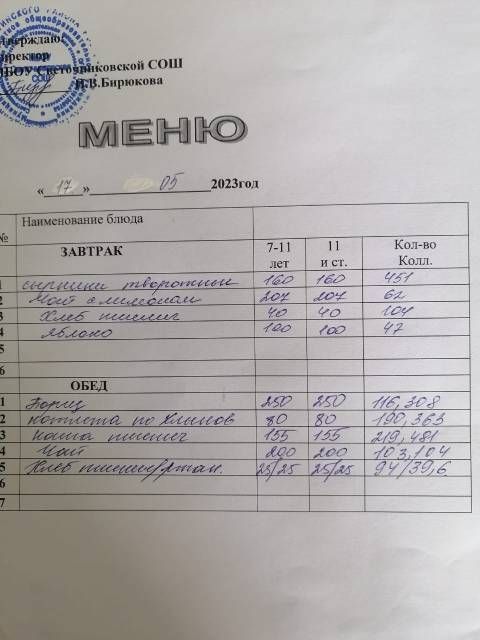 тверждаю:
иректор
БОУ Светочниковской СОШ
В.В.Бирюкова
МЕНЮ
« 17 » 05 2023год
№ Наименование блюда
ЗАВТРАК 7-11 лет 11 и ст. Кол-во Колл.
1 сырники творожные 160 160 451
2 Чай с лимоном 207 207 62
3 Хлеб пшениг 40 40 104
4 Яблоко 100 100 47
5
6
ОБЕД
1 Борщ 250 250 116,308
2 котлета по Хлынов 80 80 190,363
3 каша пшениг 155 155 219,481
4 Чай 200 200 103,104
5 Хлеб пшенич/ржан. 25/25 25/25 94/39,6
6
7